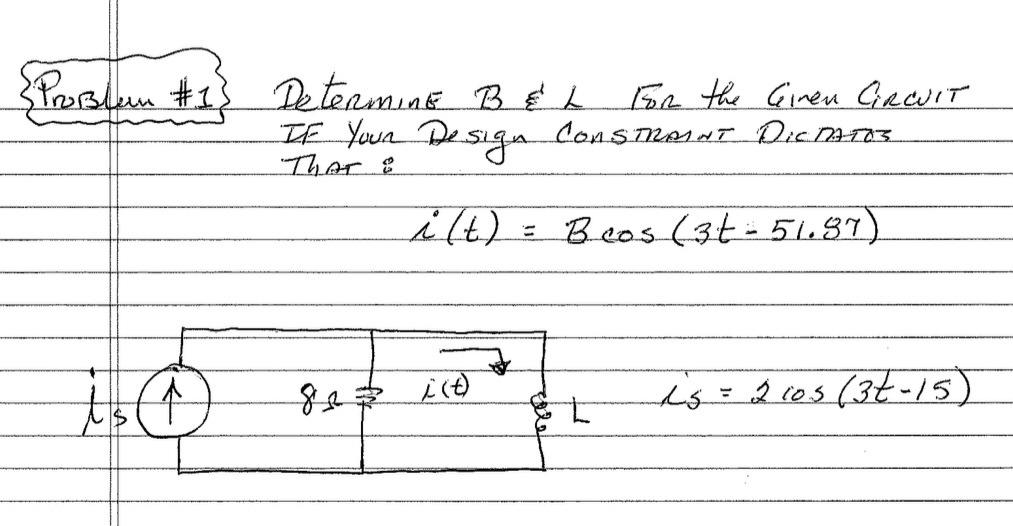 Problem #1 Determine B & L For the Given Circuit
IF Your Design Constraint Dictates
That :
i(t) = B cos (3t - 51.87)
is 8Ω i(t) L is = 2 cos (3t - 15)